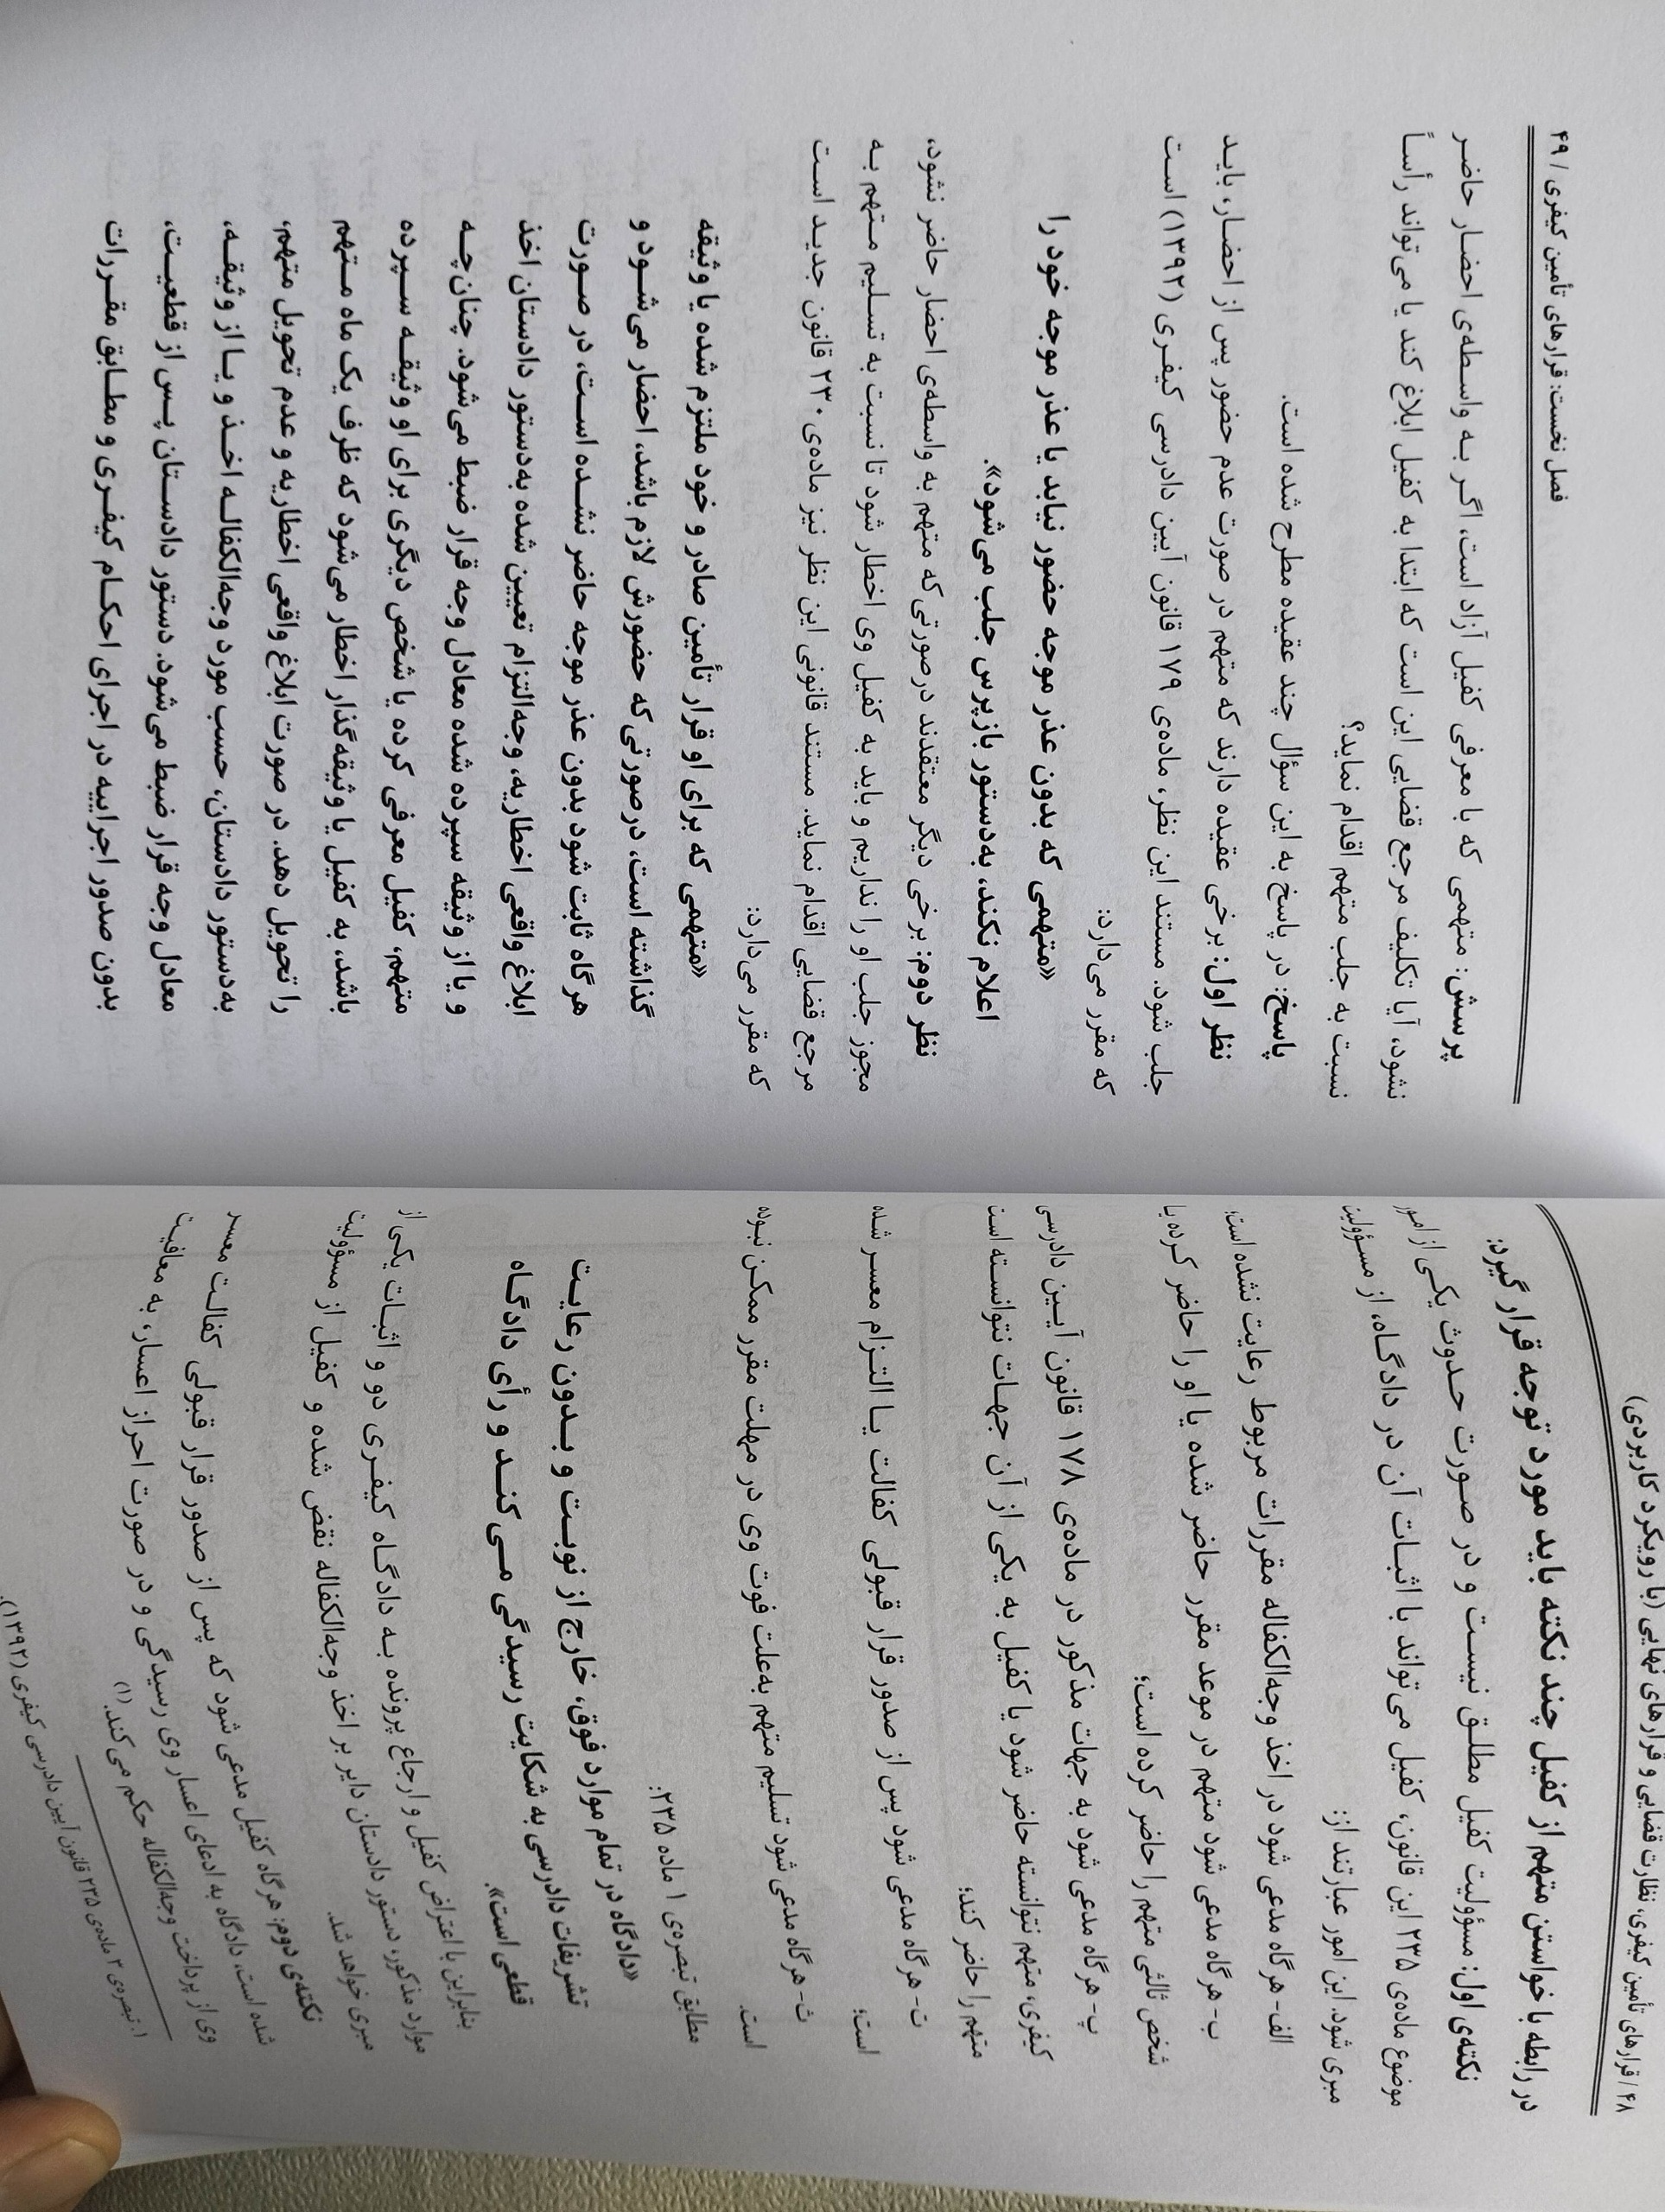 ۴۸ / قرارهای تأمین کیفری، نظارت قضایی و قرارهای نهایی (با رویکرد کاربردی)
در رابطه با خواستن متهم از کفیل چند نکته باید مورد توجه قرار گیرد:
نکته‌ی اول: مسؤولیت کفیل مطلـق نیست و در صـورت حـدوث یکـی از امور
موضوع ماده‌ی ۲۳۵ این قانون، کفیل می‌تواند با اثبـات آن در دادگـاه، از مسـؤولیت
مبری شود. این امور عبارتند از:
الف- هرگاه مدعی شود در اخذ وجه‌الکفاله مقررات مربوط رعایت نشده است؛
ب- هرگاه مدعی شود متهم در موعد مقرر حاضر شده یا او را حاضر کرده یا
شخص ثالثی متهم را حاضر کرده است؛
پ- هرگاه مدعی شود به جهات مذکور در ماده‌ی ۱۷۸ قانون آیـین دادرسی
کیفری، متهم نتوانسته حاضر شود یا کفیل به یکی از آن جهـات نتوانسـته است
متهم را حاضر کند؛
ت- هرگاه مدعی شود پس از صدور قرار قبولی کفالت یـا التـزام معسـر شده
است؛
ث- هرگاه مدعی شود تسلیم متهم به‌علت فوت وی در مهلت مقرر ممکـن نبوده
است.
مطابق تبصره‌ی ۱ ماده ۲۳۵:
«دادگاه در تمام موارد فوق، خارج از نوبـت و بـدون رعایـت
تشریفات دادرسی به شکایت رسیدگی مـی‌کنـد و رأی دادگـاه
قطعی است».
بنابراین با اعتراض کفیل و ارجاع پرونده بـه دادگـاه کیفـری دو و اثبـات یکـی از
موارد مذکور، دستور دادستان دایر بر اخذ وجه‌الکفاله نقض شده و کفیل از مسؤولیت
مبری خواهد شد.
نکته‌ی دوم: هرگاه کفیل مدعی شود که پس از صدور قرار قبولی کفالـت معسـر
شده است، دادگاه به ادعای اعسار وی رسیدگی و در صورت احراز اعسار، به معافیت
وی از پرداخت وجه‌الکفاله حکم می‌کند.(۱)
۱. تبصره‌ی ۲ ماده‌ی ۲۳۵ قانون آیین دادرسی کیفری (۱۳۹۲).
فصل نخست: قرارهای تأمین کیفری / ۴۹
پرسش: متهمی که با معرفی کفیل آزاد است، اگـر بـه واسـطه‌ی احضـار حاضـر
نشود، آیا تکلیف مرجع قضایی این است که ابتدا به کفیل ابلاغ کند یا می‌تواند رأسـاً
نسبت به جلب متهم اقدام نماید؟
پاسخ: در پاسخ به این سؤال چند عقیده مطرح شده است.
نظر اول: برخی عقیده دارند که متهم در صورت عدم حضور پس از احضـار، بایـد
جلب شود. مستند این نظر، ماده‌ی ۱۷۹ قانون آیین دادرسی کیفـری (۱۳۹۲) اسـت
که مقرر می‌دارد:
«متهمی که بدون عذر موجه حضور نیابد یا عذر موجه خود را
اعلام نکند، به‌دستور بازپرس جلب می‌شود».
نظر دوم: برخی دیگر معتقدند درصورتی‌که متهم به واسطه‌ی احضار حاضر نشود،
مجوز جلب او را نداریم و باید به کفیل وی اخطار شود تا نسبت به تسـلیم مـتهم بـه
مرجع قضایی اقدام نماید. مستند قانونی این نظر نیز ماده‌ی ۲۳۰ قانون جدیـد اسـت
که مقرر می‌دارد:
«متهمی که برای او قرار تأمین صادر و خود ملتزم شده یا وثیقه
گذاشته است، درصورتی‌که حضورش لازم باشد، احضار می‌شـود و
هرگاه ثابت شود بدون عذر موجه حاضر نشـده اسـت، در صـورت
ابلاغ واقعی اخطاریه، وجه‌التزام تعیین شده به‌دستور دادستان اخذ
و یا از وثیقه سپرده شده معادل وجه قرار ضبط می‌شود. چنان‌چـه
متهم، کفیل معرفی کرده یا شخص دیگری برای او وثیقـه سـپرده
باشد، به کفیل یا وثیقه‌گذار اخطار می‌شود که ظرف یک ماه مـتهم
را تحویل دهد. در صورت ابلاغ واقعی اخطاریه و عدم تحویل متهم،
به‌دستور دادستان، حسب مورد وجه‌الکفالـه اخـذ و یـا از وثیقـه،
معادل وجه قرار ضبط می‌شود. دستور دادسـتان پـس از قطعیـت،
بدون صدور اجراییه در اجرای احکـام کیفـری و مطـابق مقـررات